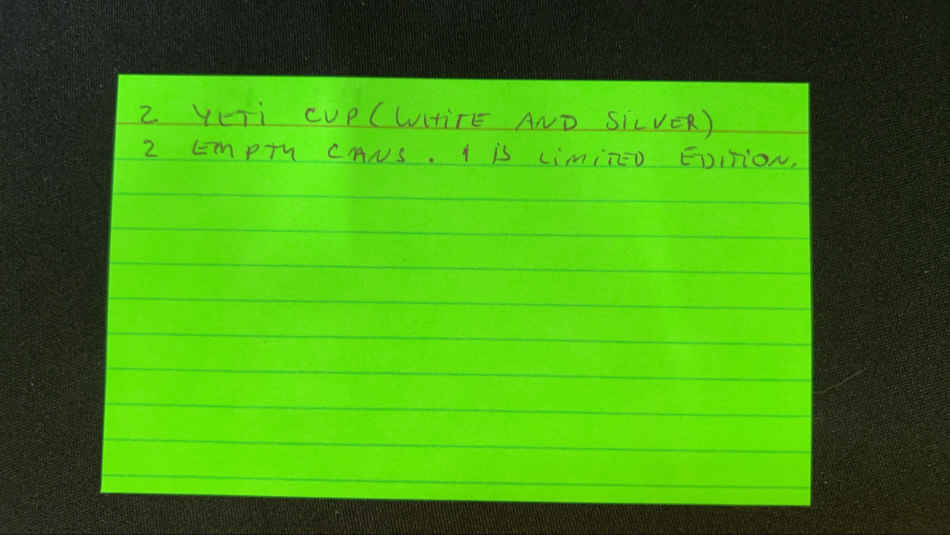 2 YETi CUP (WHiTE AND SiLVER)
2 EMPTY CANS. 1 iS LiMiTED EDiTiON.